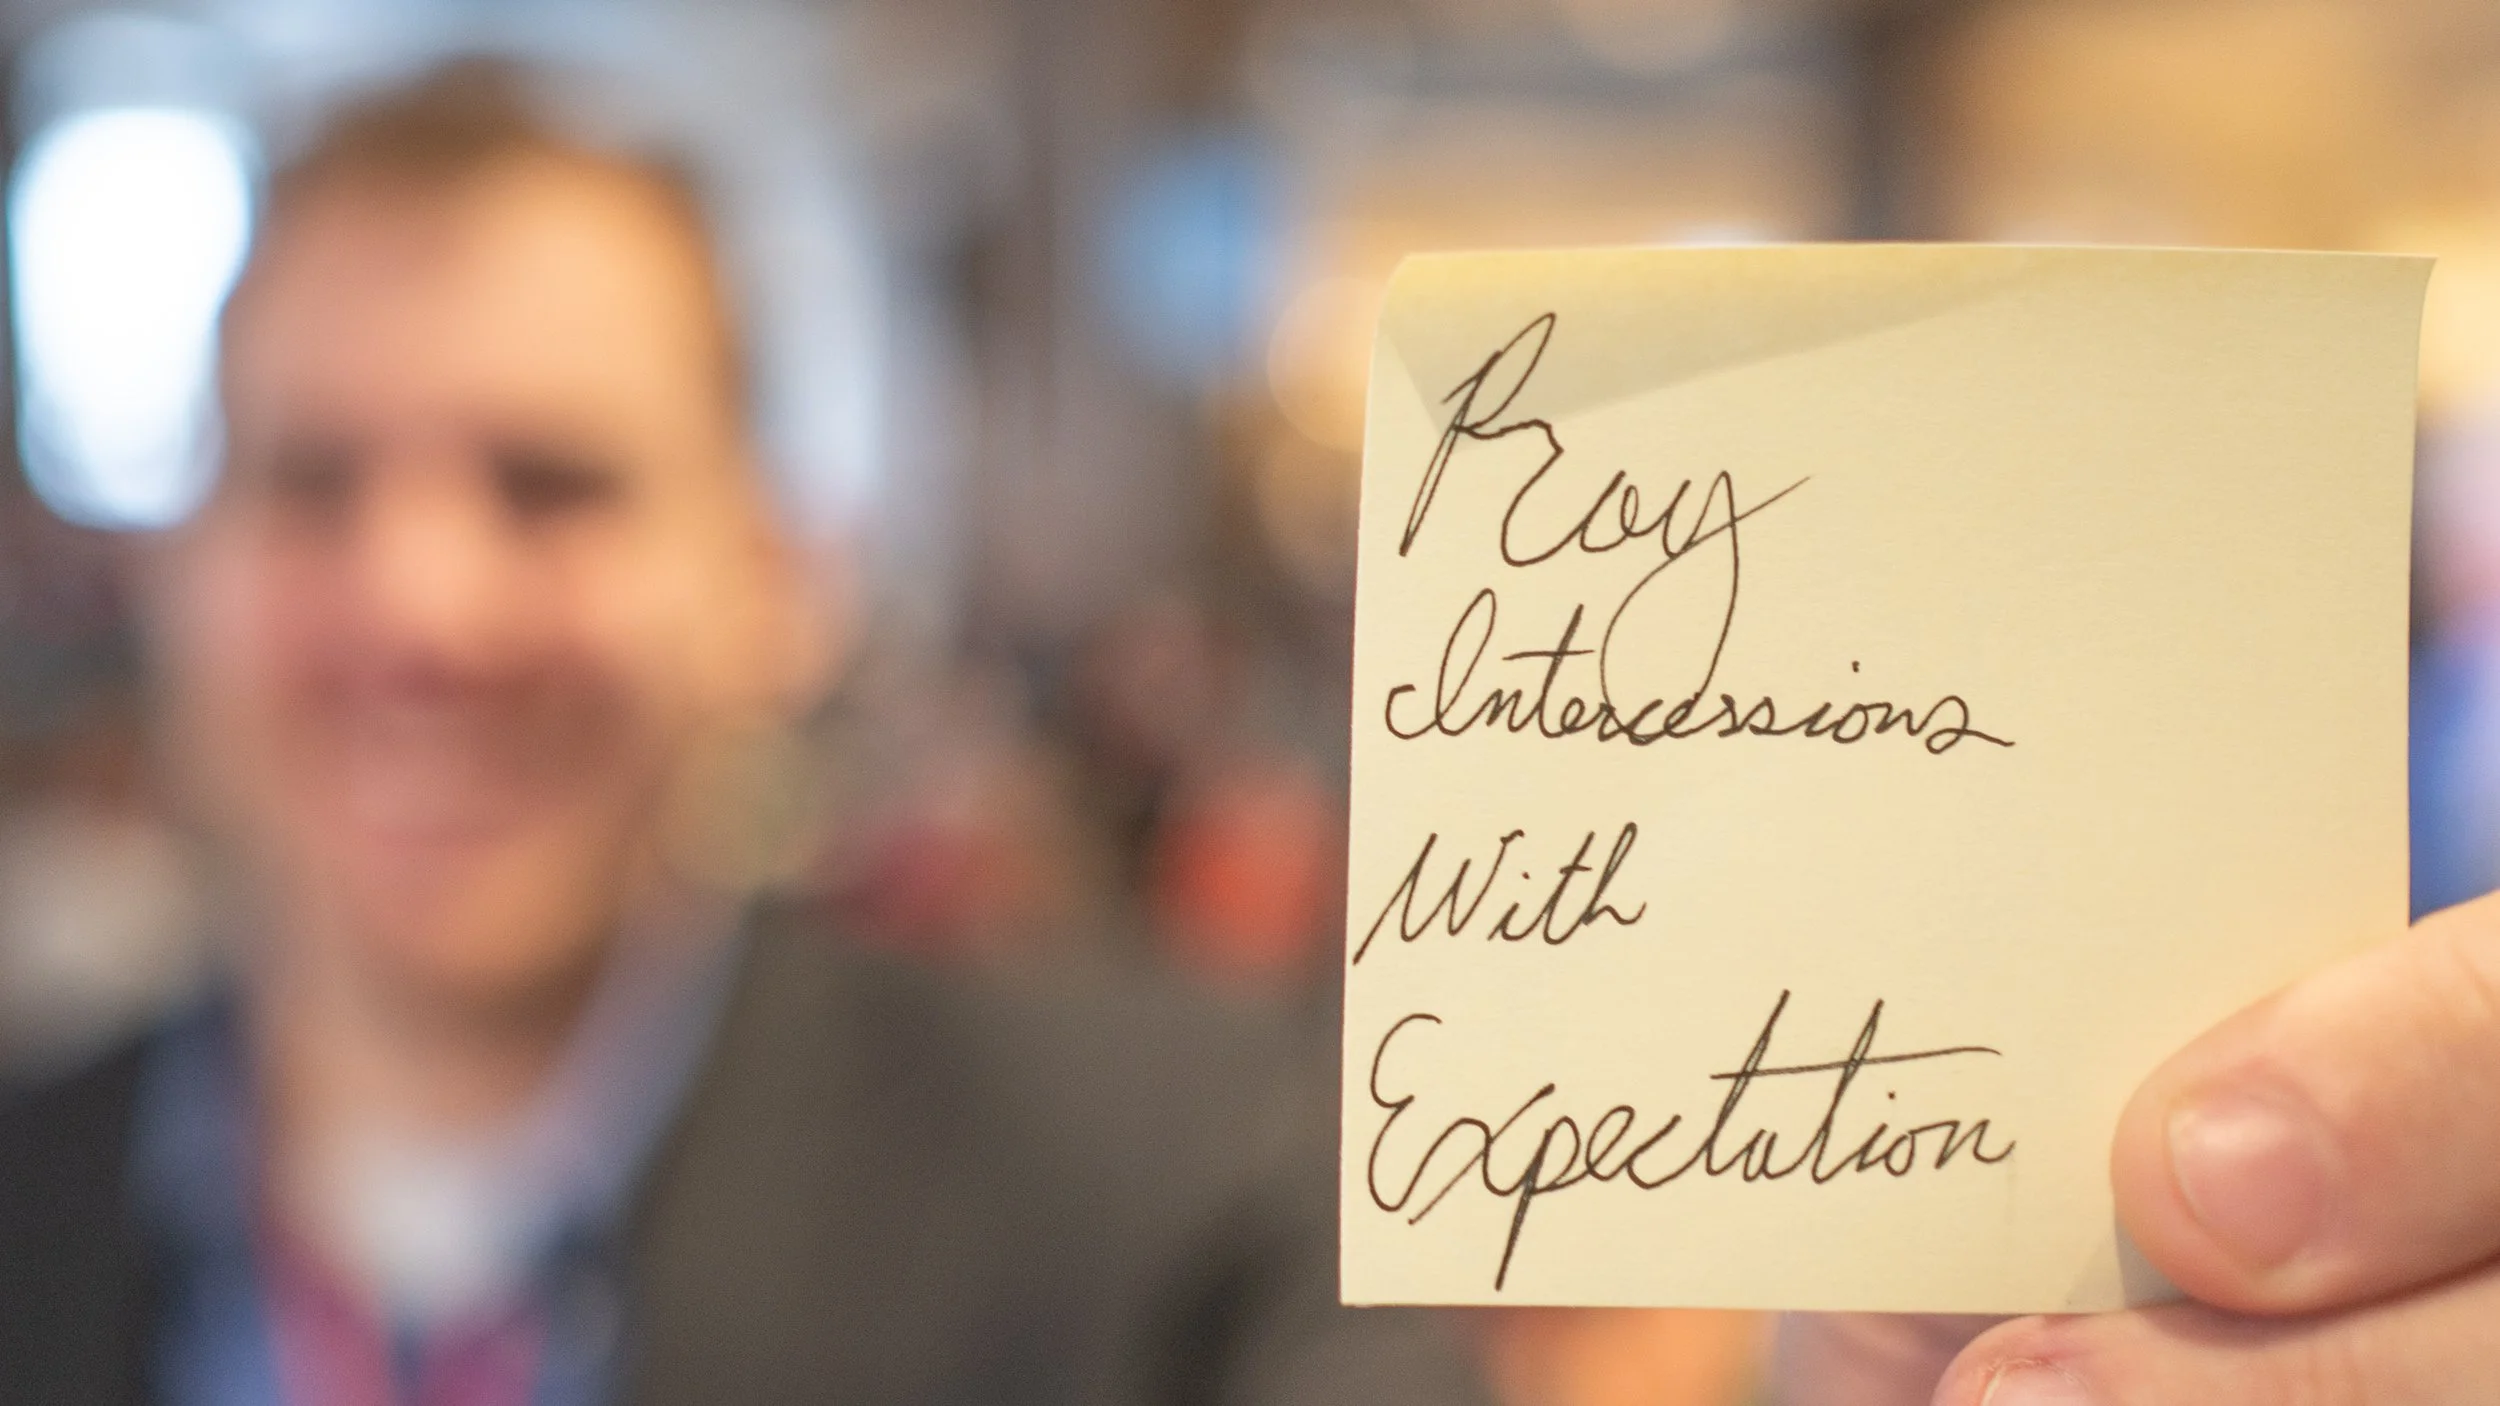 Pray
Intercessions
With
Expectation